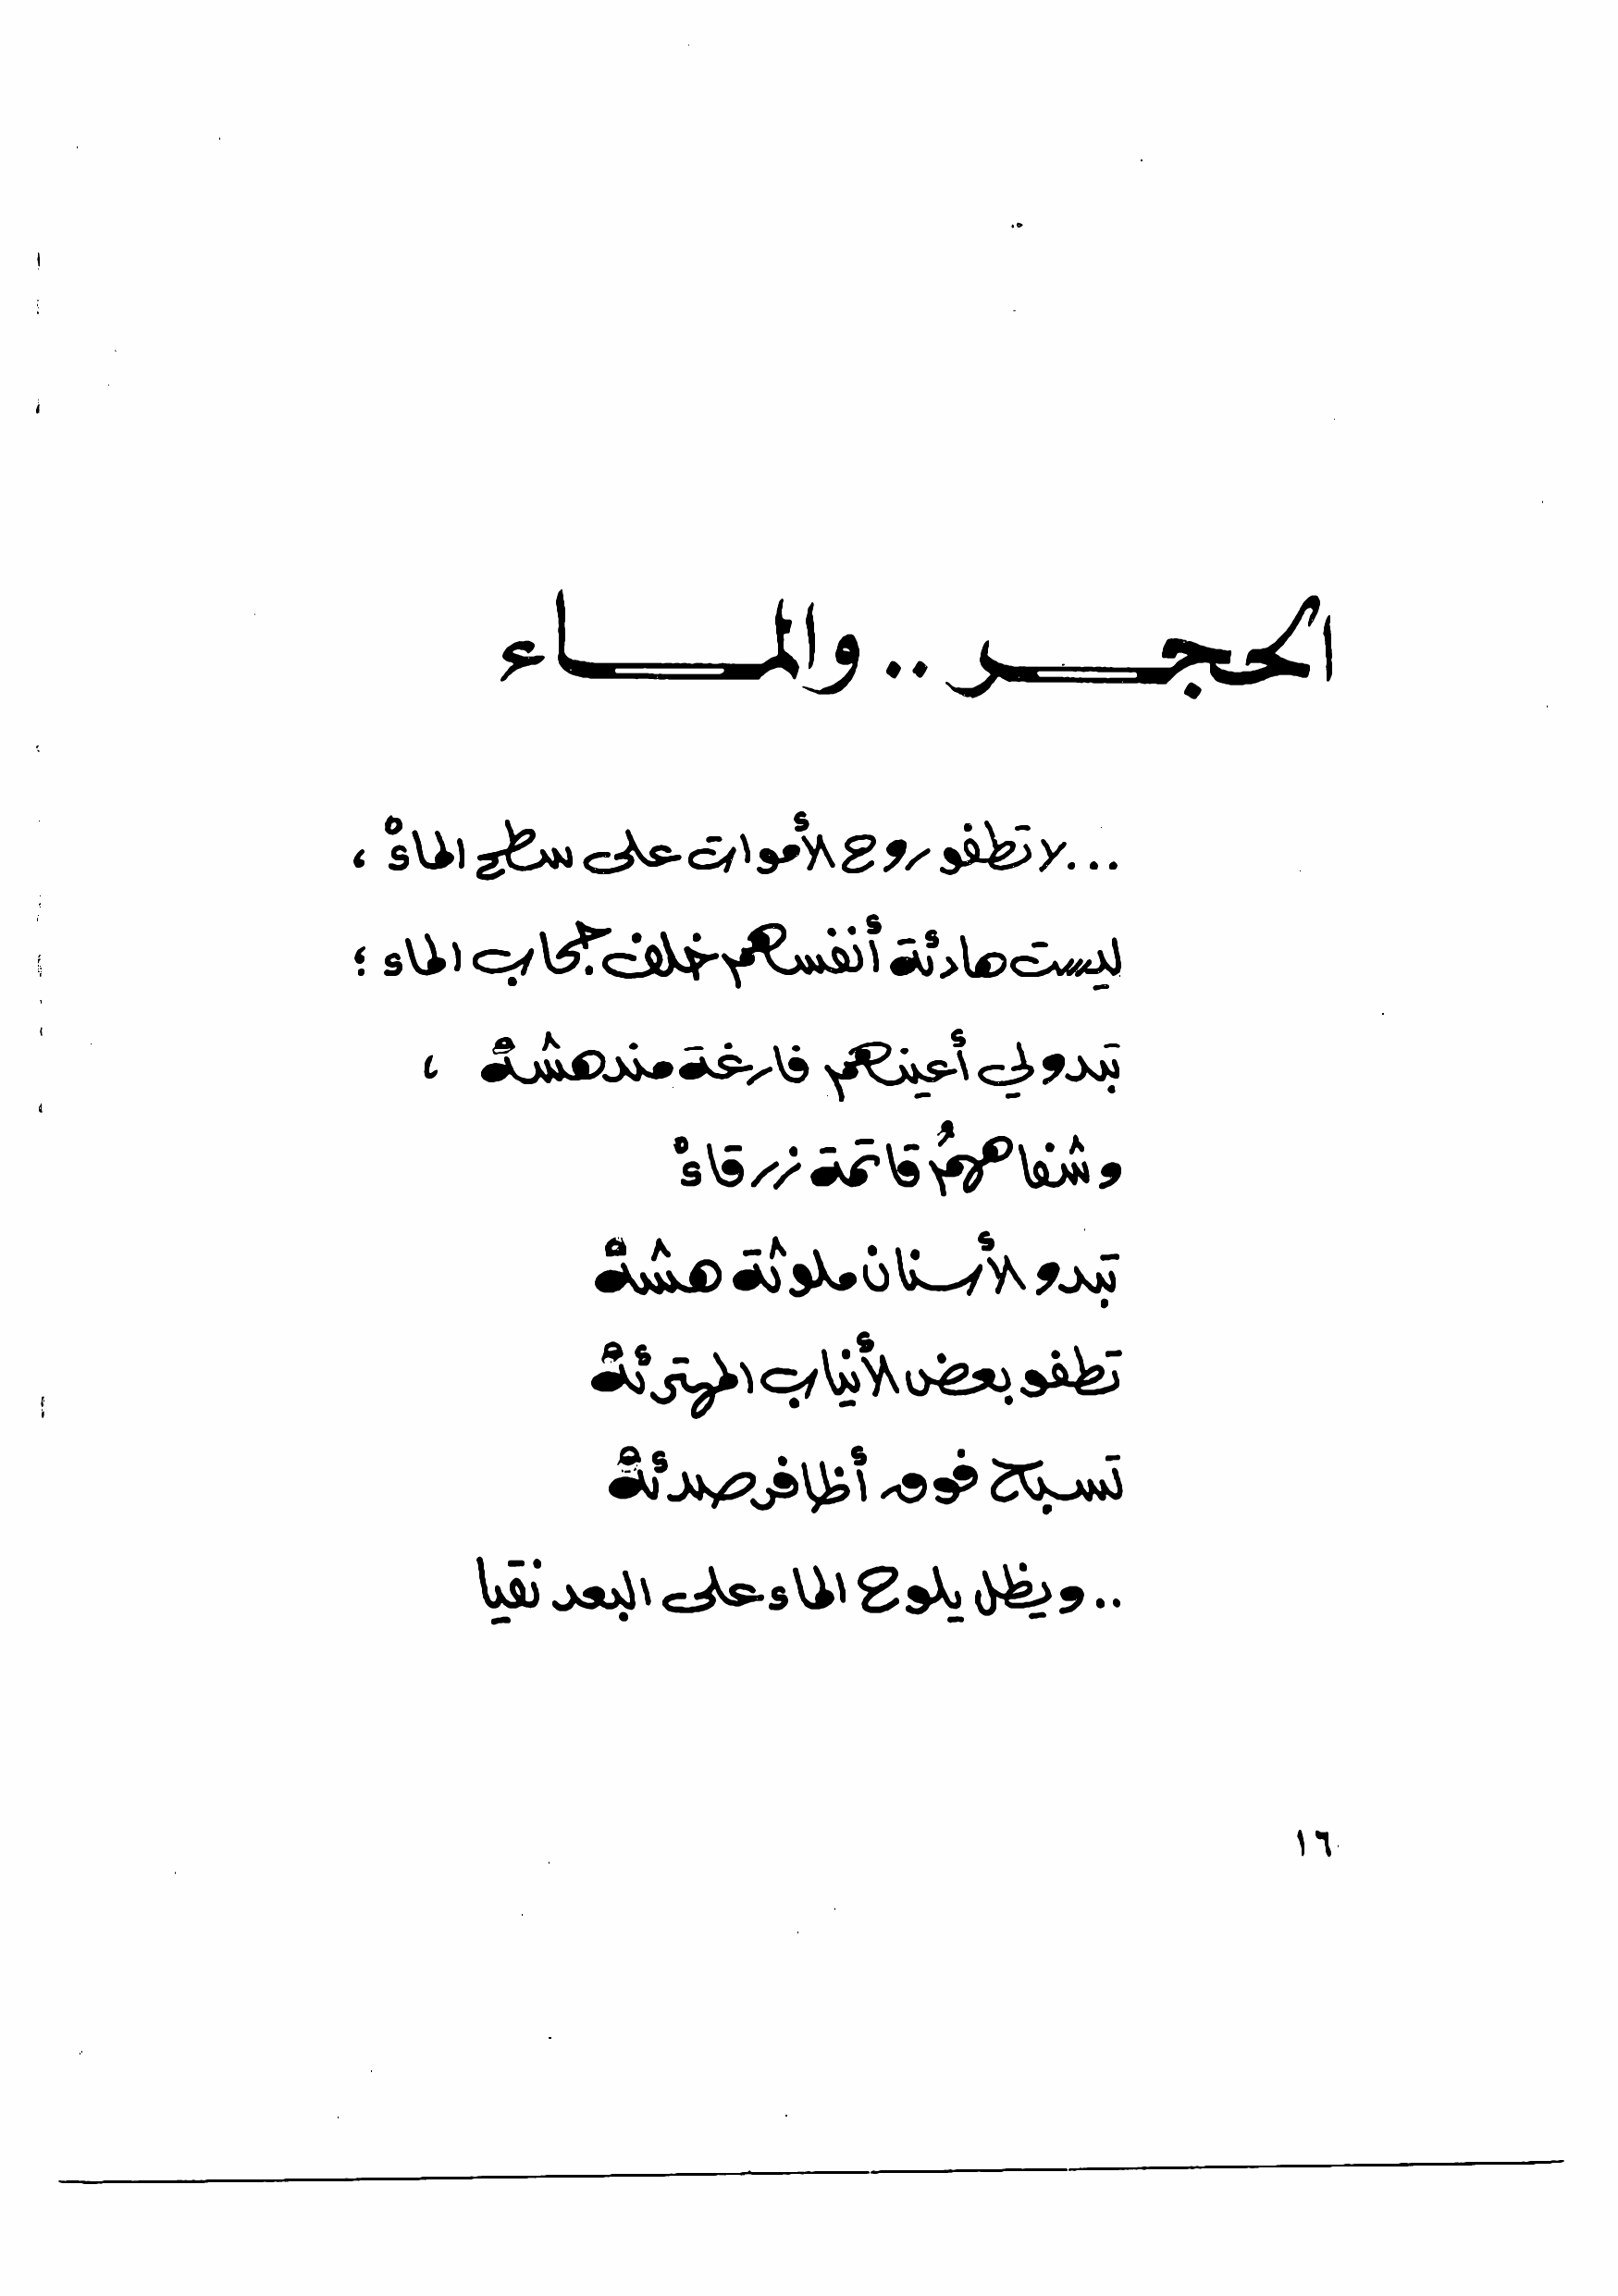 الحجــر .. والمــاء
... لا تطفو روح الأموات على سطح الماءْ ،
ليست هادئة أنفسهم خلف حجاب الماء ؛
تبدو لي أعينهم فارغة مندهشهْ ،
وشفاههمُ قاتمة زرقاءْ
تبدو الأسنان ملوثة هشهْ
تطفو بعض الأنياب المهترئهْ
تسبح فوق أظافر صدئهْ
.. ويظل يلوح الماء على البعد نقيا
١٦